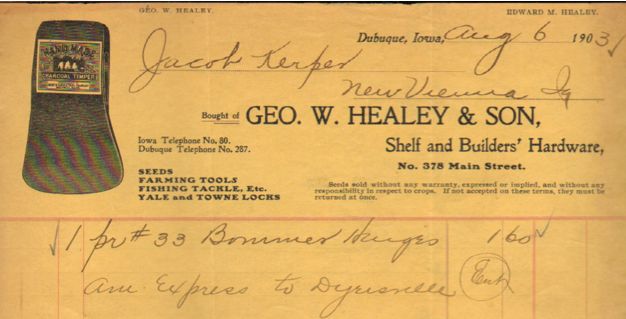 GEO. W. HEALEY. EDWARD M. HEALEY.
Dubuque, Iowa, Aug 6 1903
Jacob Kerper
New Vienna Ia
Bought of GEO. W. HEALEY & SON,
Shelf and Builders' Hardware,
No. 378 Main Street.
Iowa Telephone No. 80.
Dubuque Telephone No. 287.
SEEDS
FARMING TOOLS
FISHING TACKLE, Etc.
YALE and TOWNE LOCKS
Seeds sold without any warranty, expressed or implied, and without any
responsibility in respect to crops. If not accepted on these terms, they must be
returned at once.
HAND MADE
CHARCOAL TEMPER
1 pr # 33 Bommer Hinges 1 60
Am Express to Dyersville Ent